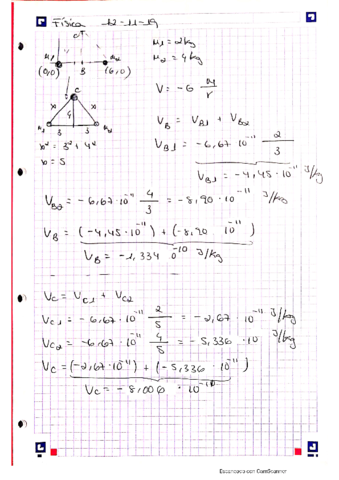 Física 12-11-19
M₁ = 2kg
M₂ = 4kg
M₁ B M₂
(0,0) (6,0)
V = -G M/r
C
x 4 x
M₁ 3 3 M₂
V_B = V_B1 + V_B2
V_B1 = -6,67·10⁻¹¹ 2/3
x² = 3² + 4²
x = 5
V_B1 = -4,45·10⁻¹¹ J/kg
V_B2 = -6,67·10⁻¹¹ 4/3 = -8,90·10⁻¹¹ J/kg
V_B = (-4,45·10⁻¹¹) + (-8,90 10⁻¹¹)
V_B = -1,334 10⁻¹⁰ J/kg
V_C = V_C1 + V_C2
V_C1 = -6,67·10⁻¹¹ 2/5 = -2,67·10⁻¹¹ J/kg
V_C2 = -6,67·10⁻¹¹ 4/5 = -5,336·10 J/kg
V_C = (-2,67·10⁻¹¹) + (-5,336·10⁻¹¹)
V_C = -8,006 ·10⁻¹⁰
Escaneado con CamScanner